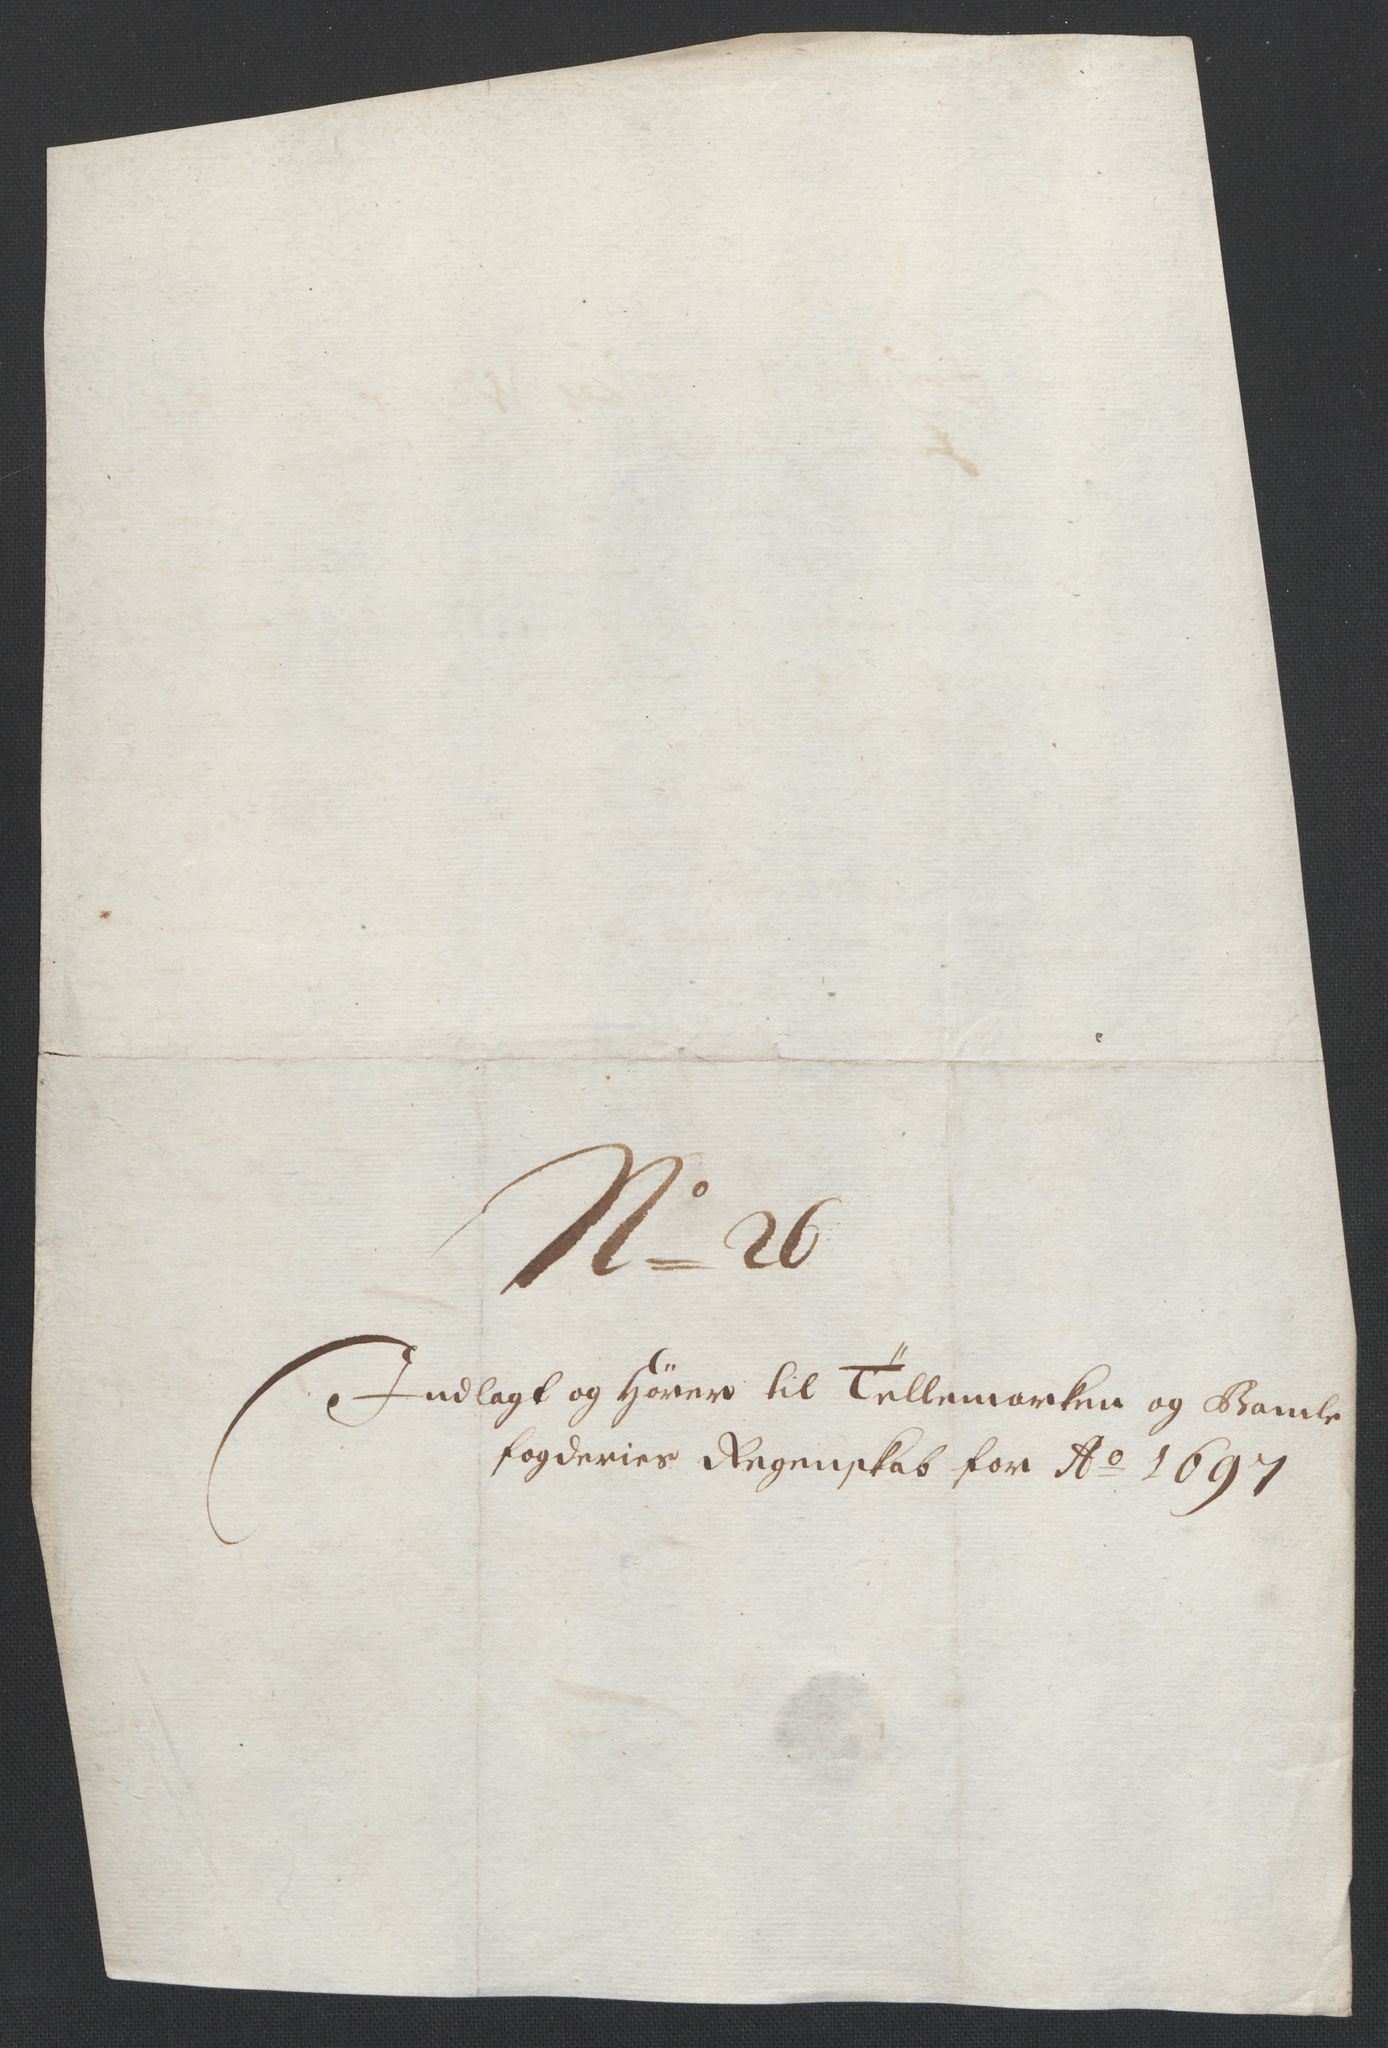 No 26
Indlagt og Hörer til Tellemarken og Bamle
fogderies Regenskab for Ao 1697